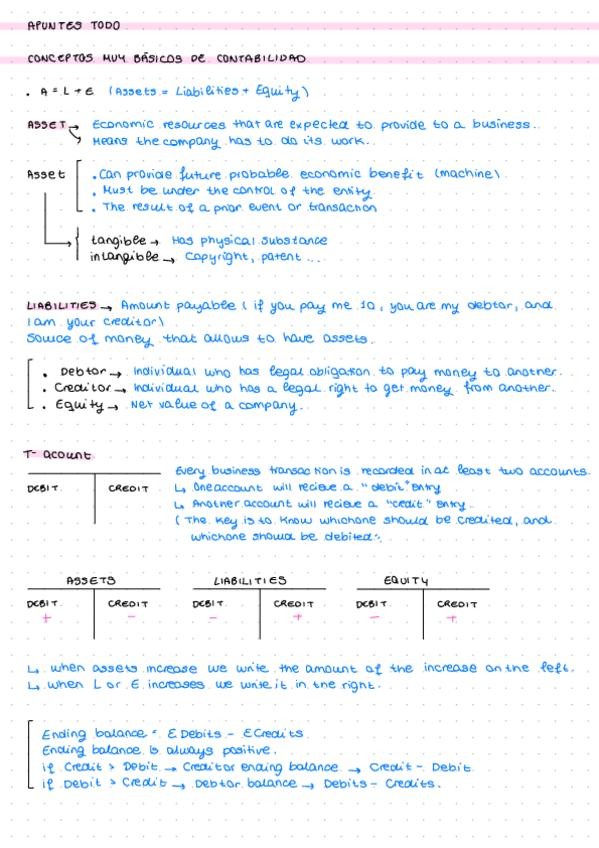 APUNTES TODO
CONCEPTOS MUY BÁSICOS DE CONTABILIDAD
. A = L + E (Assets = Liabilities + Equity)
ASSET → Economic resources that are expected to provide to a business.
↘ Means the company has to do its work.
Asset [ . Can provide future probable economic benefit (machine)
. Must be under the control of the entity
. The result of a prior event or transaction
tangible → Has physical substance
intangible → Copyright, patent ...
LIABILITIES → Amount payable ( if you pay me 10, you are my debtor, and
I am your creditor)
Source of money that allows to have assets.
. Debtor → Individual who has legal obligation to pay money to another.
. Creditor → Individual who has a legal right to get money from another.
. Equity → Net value of a company.
T- acount
Every business transaction is recorded in at least two accounts.
DEBIT CREDIT
↳ One account will recieve a "debit" entry
↳ Another account will recieve a "credit" entry.
( The key is to know which one should be credited, and
which one should be debited.
ASSETS LIABILITIES EQUITY
DEBIT CREDIT DEBIT CREDIT DEBIT CREDIT
+ - - + - +
↳ when assets increase we write the amount of the increase on the left.
↳ when L or E increases we write it in the right.
Ending balance = Σ Debits - Σ Credits
Ending balance is always positive.
if Credit > Debit → Creditor ending balance → Credit - Debit
if Debit > Credit → Debtor balance → Debits - Credits.